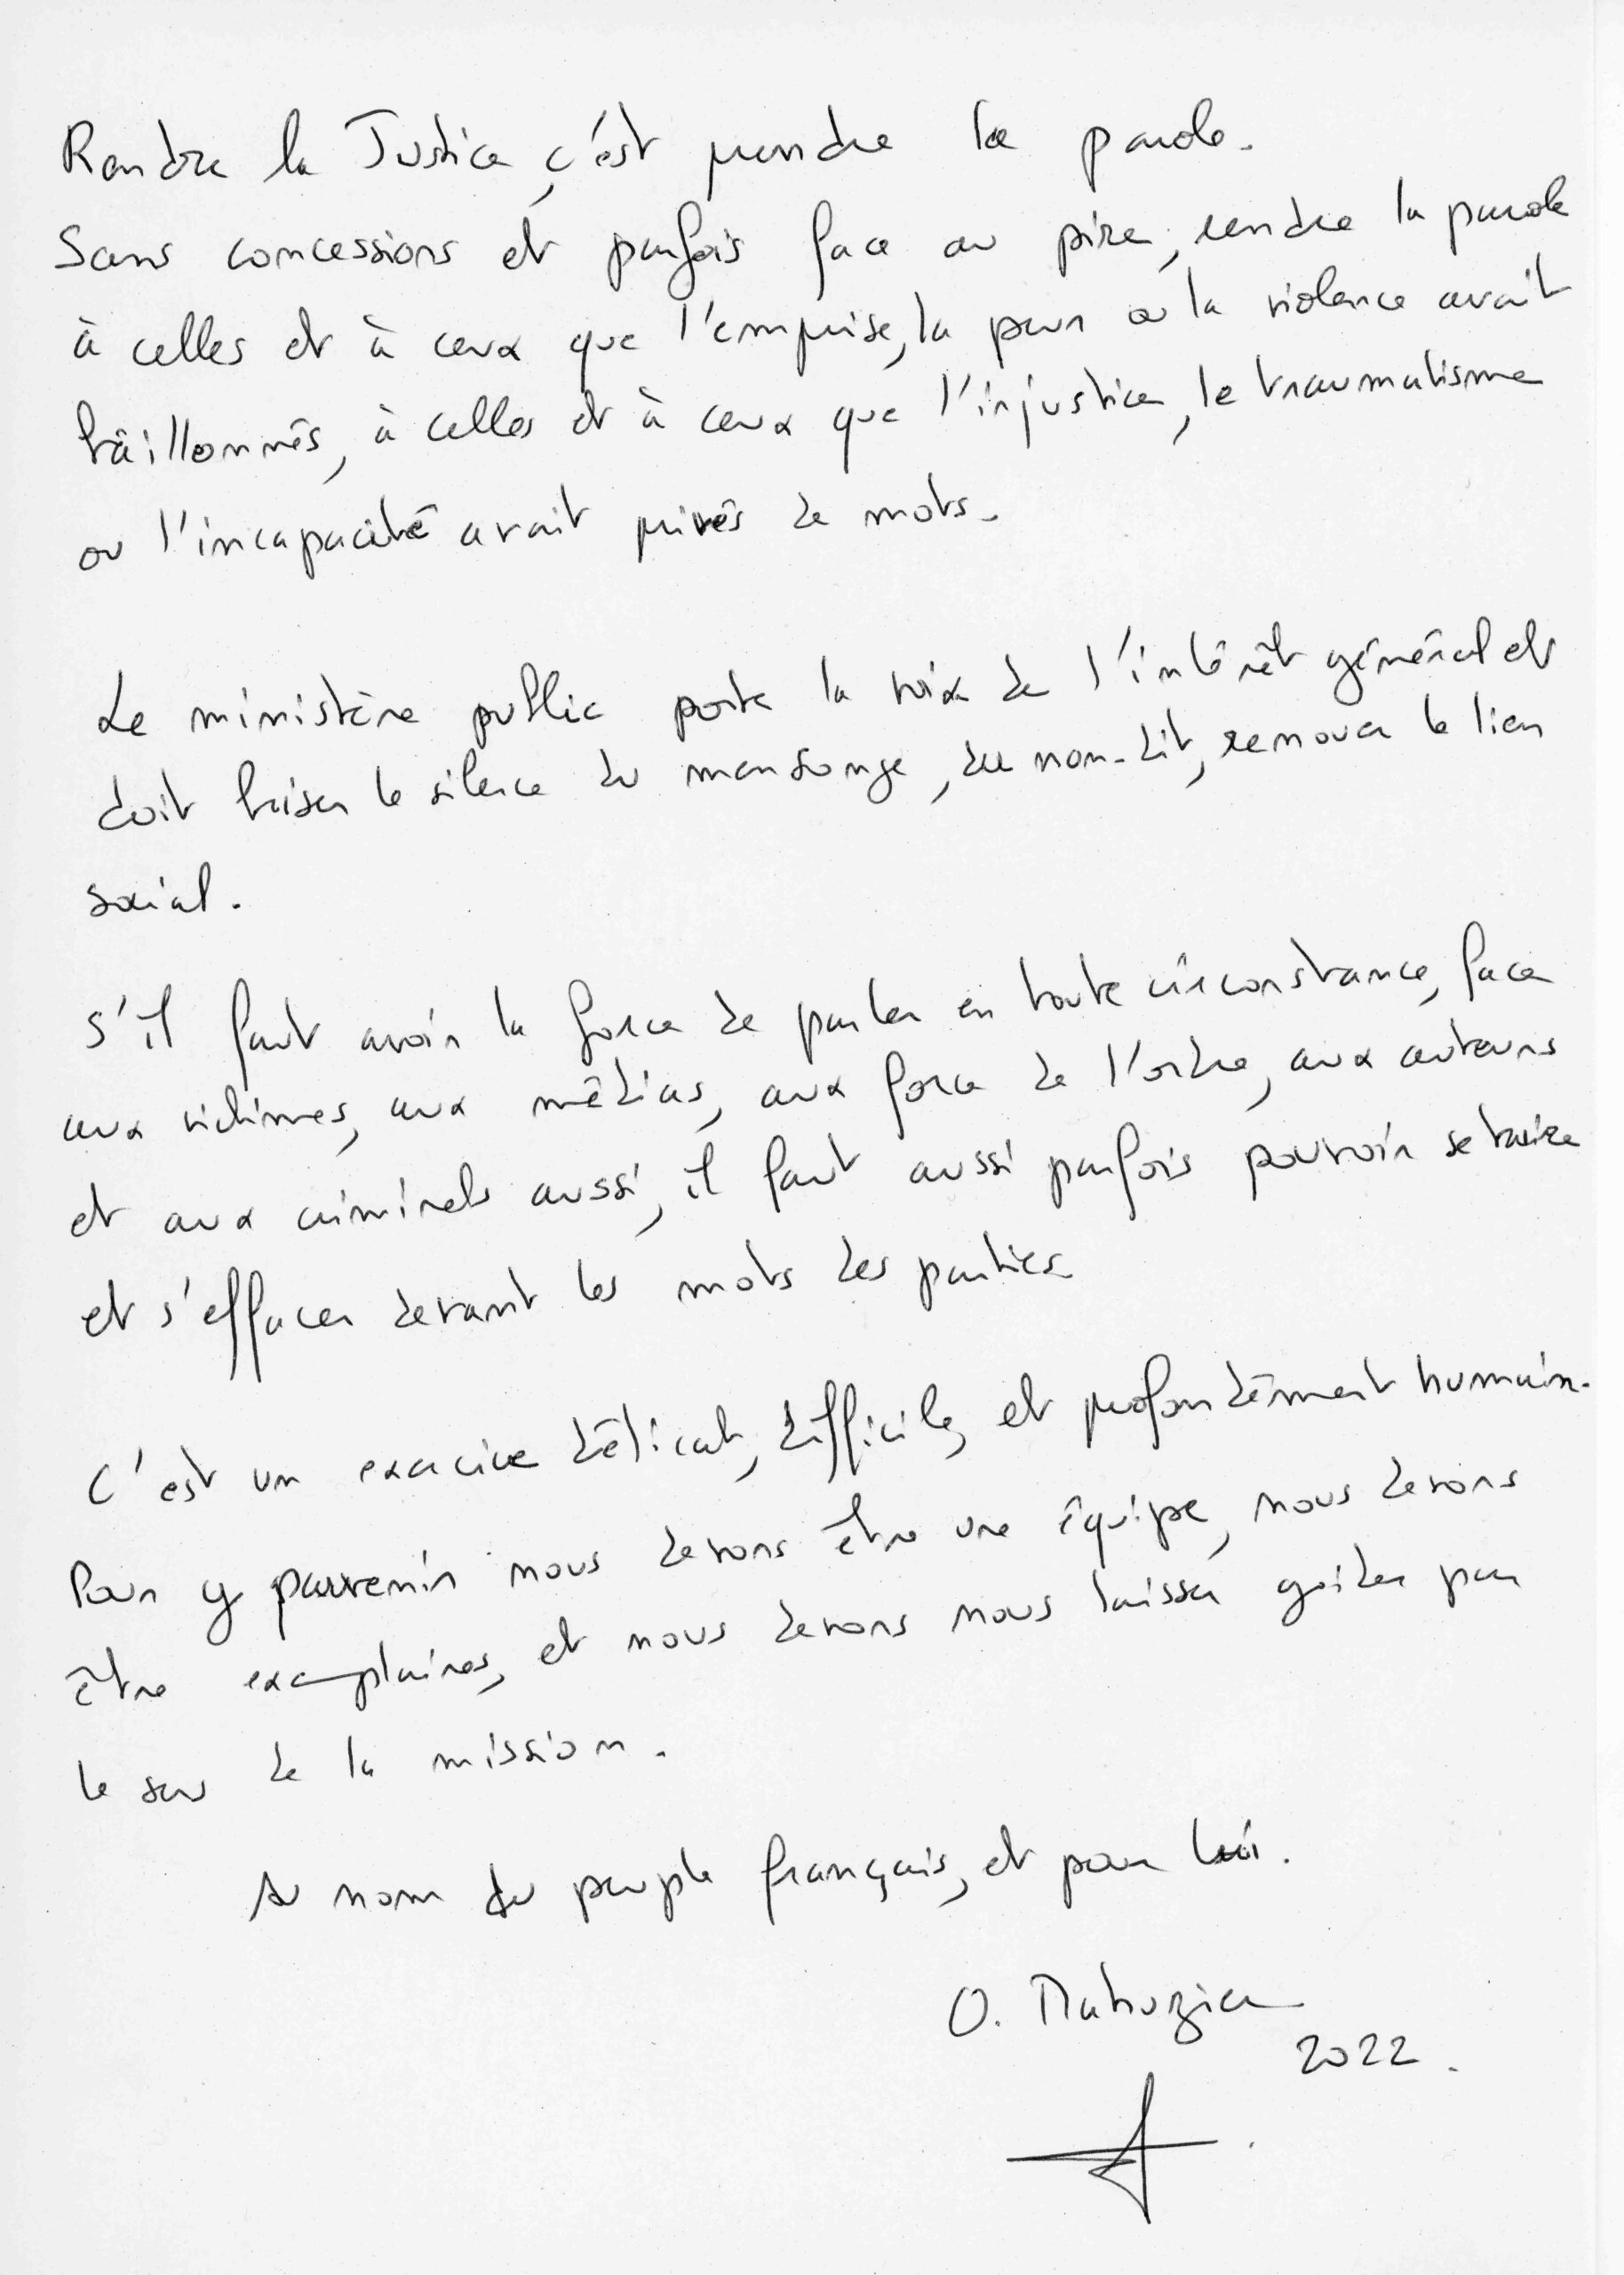 Rendre la Justice, c'est prendre la parole.
Sans concessions et parfois face au pire, rendre la parole
à celles et à ceux que l'emprise, la peur ou la violence avait
bâillonnés, à celles et à ceux que l'injustice, le traumatisme
ou l'incapacité avait privés de mots.
Le ministère public porte la voix de l'intérêt général et
doit briser le silence du mensonge, du non-dit, renouer le lien
social.
S'il faut avoir la force de parler en toute circonstance, face
aux victimes, aux médias, aux force de l'ordre, aux auteurs
et aux criminels aussi, il faut aussi parfois pouvoir se taire
et s'effacer devant les mots des parties.
C'est un exercice délicat, difficile, et profondément humain.
Pour y parvenir nous devons être une équipe, nous devons
être exemplaires, et nous devons nous laisser guider par
le sens de la mission.
Au nom du peuple français, et pour lui.
O. Mahuzier
2022.